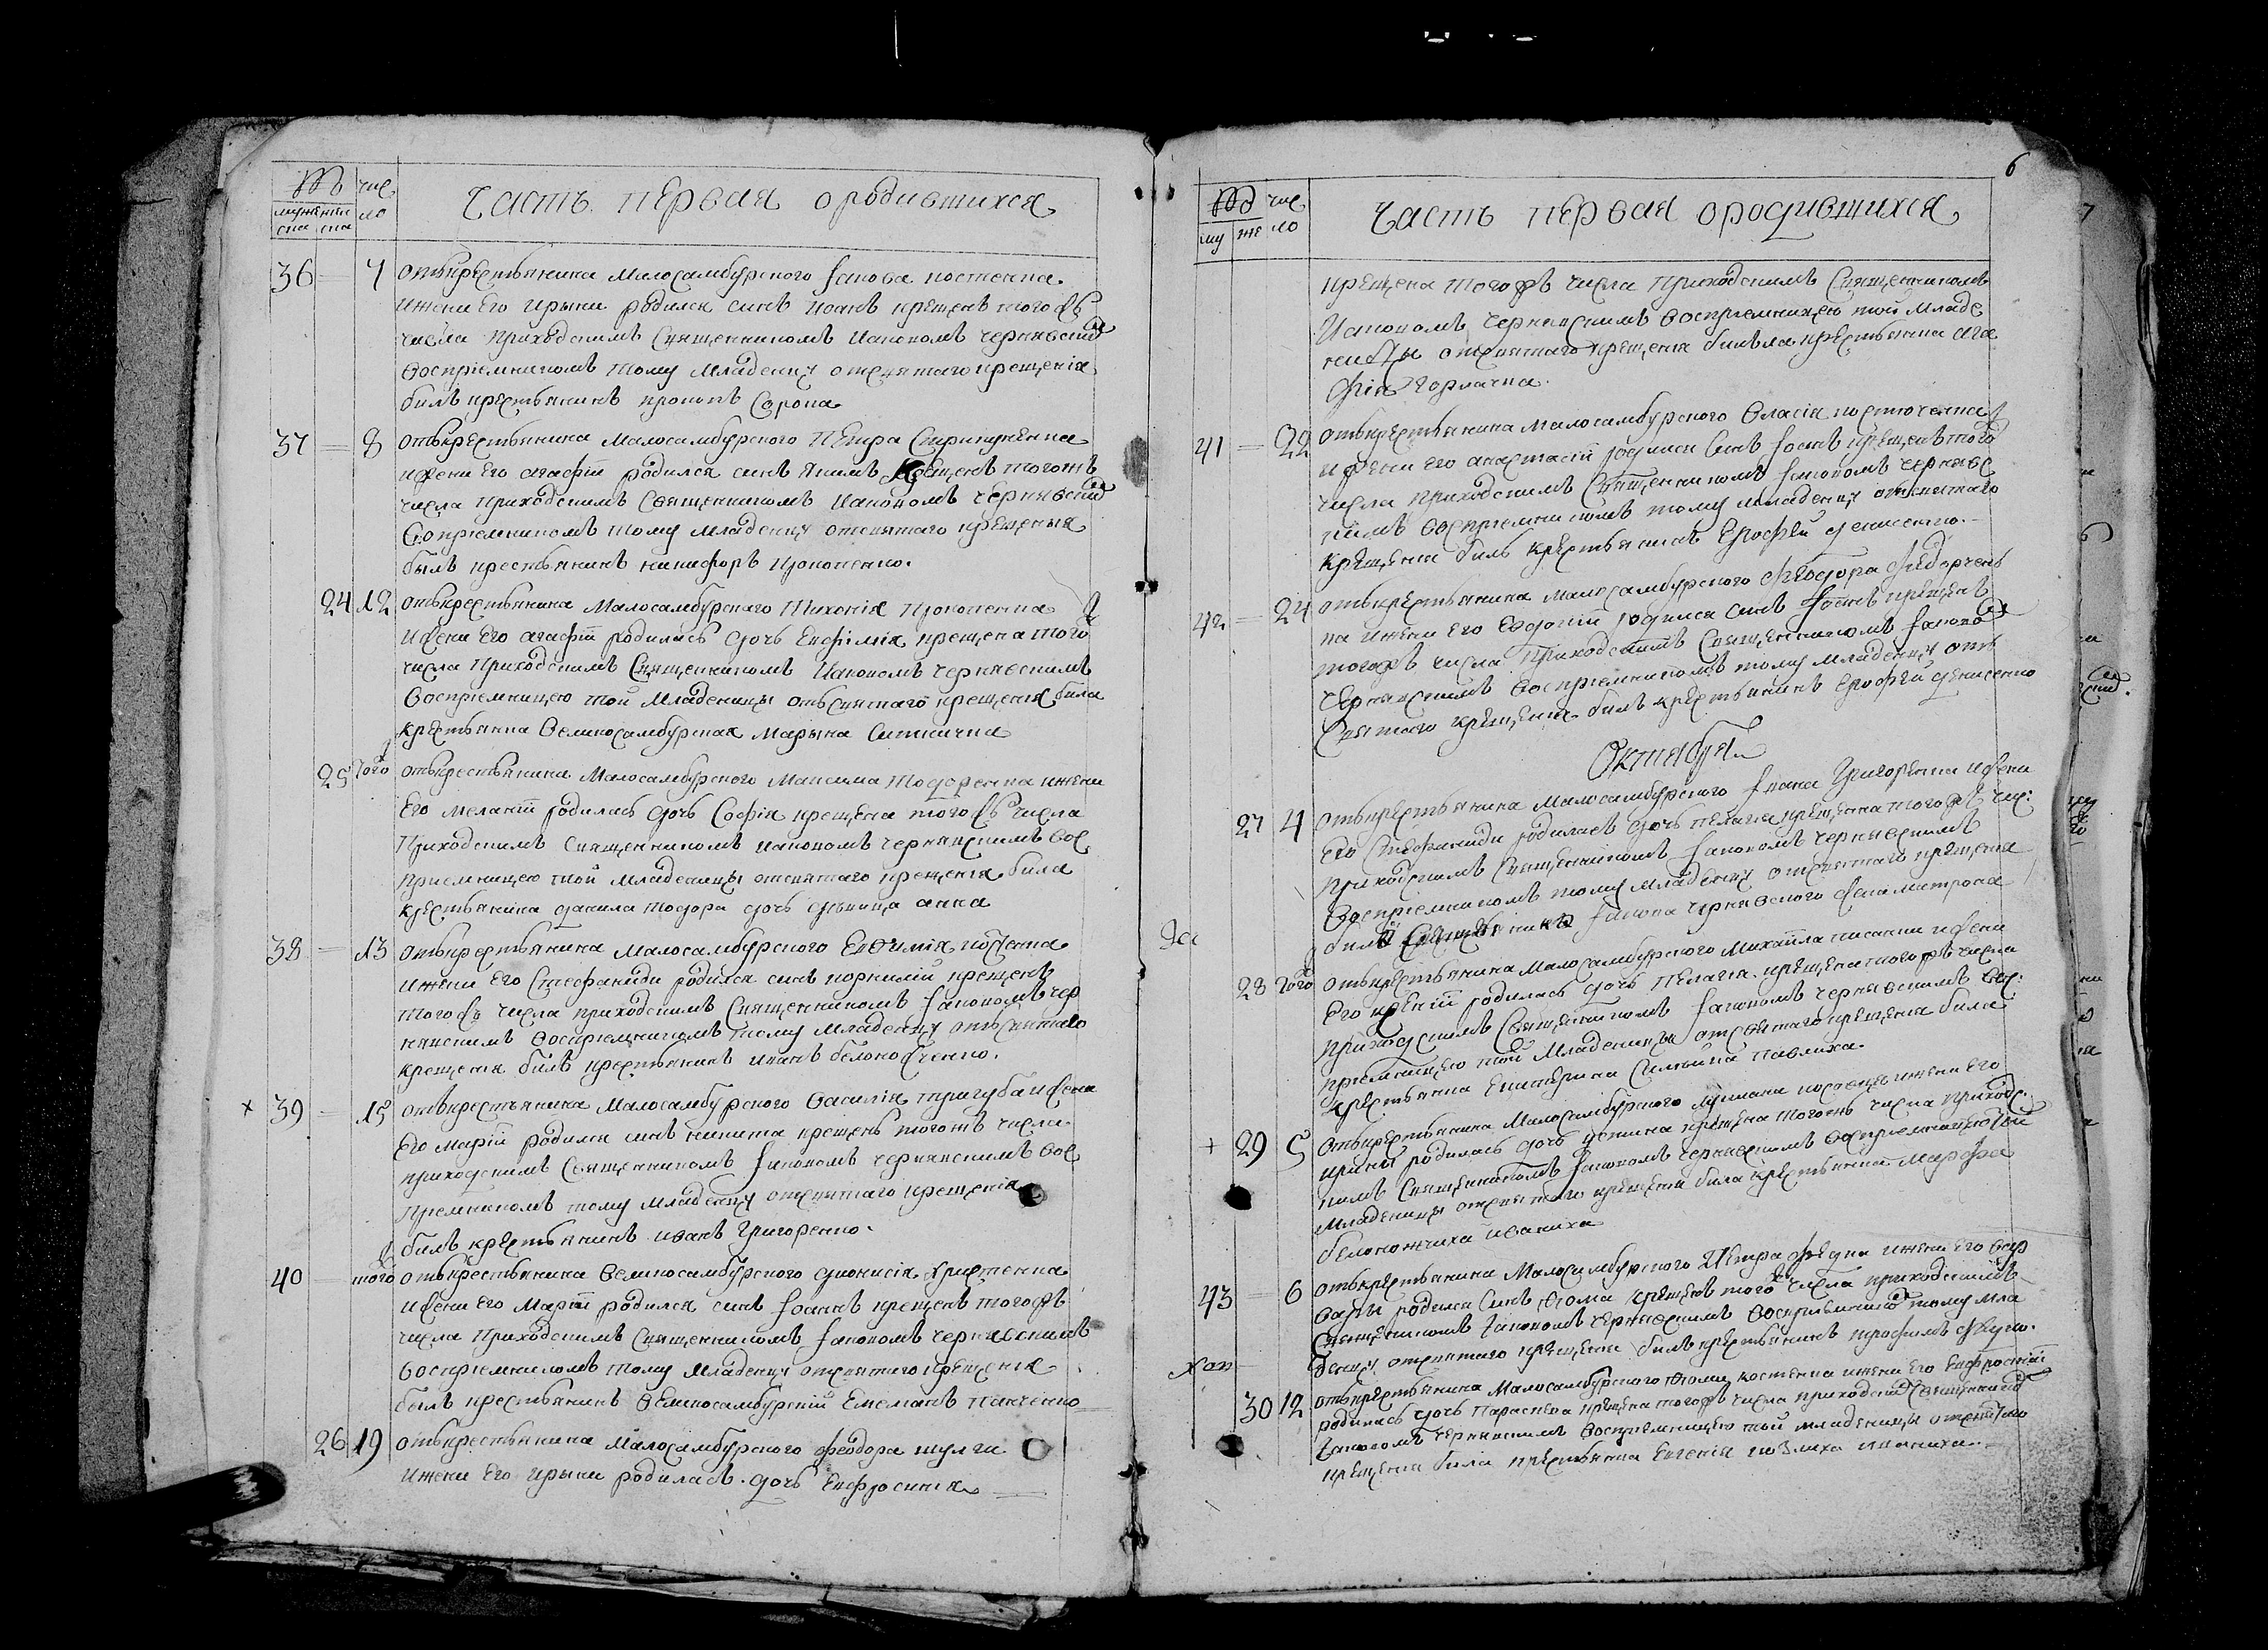 № чис
мужеска женска ло
Часть первая о родившихся
36 7 отькрестьянина Малосамбурского Iакова костенка
ижени Его Ирыни родился синъ Иоанъ крещенъ тогожъ
числа приходскимъ Священникомъ Иаковомъ Чернявским
восприемникомъ тому младенцу отсвятаго крещенія
билъ крестьянинъ прокопъ Сорока
37 8 отькрестьянина Малосамбурского Петра Стригуненка
ижени Его агафіи родился синъ Якимъ крещенъ тогожъ
числа приходскимъ Священникомъ Иаковомъ Чернявским
Воприемникомъ тому младенцу отсвятаго крещения
былъ крестьянинъ никифоръ Прокопенко.
24 12 отькрестьянина Малосамбурского Тихонія Прокопенка
ижени Его агафіи родилась дочь Евфимія крещена того
числа Приходскимъ Священникомъ Иаковомъ Чернявскимъ
Восприемницею той Младеницы отьСвятаго крещения била
крестьянка Великосамбурская Марына Ситничка
25 того отькрестьянина Малосамбурского Максима Тодоренка ижени
Его меланіи родилась дочь Софія крещена тогожъ числа
Приходскимъ Священникомъ Иаковомъ Чернявскимъ Вос
приемницею той младеницы отсвятаго крещенія била
крестьянина данила тодора дочь дѣвица анна
38 13 отькрестьянина Малосамбурского Евфимія
ижени Его Стефаниди родился синъ корнилій крещенъ
тогожъ числа приходскимъ Священникомъ Iаковомъ Чер
нявскимъ Восприемникомъ тому младенцу отьСвятаго
крещенія билъ крестьянинъ иванъ белоножченко.
х 39 15 отькрестьянина Малосамбурского Василія тригуба ижени
Его Маріи родился синъ никита крещенъ тогожъ числа
приходскимъ Священникомъ Iаковомъ Чернявскимъ Вос
приемникомъ тому младенцу отсвятаго крещенія
билъ крестьянинъ иванъ Григоренко.
40 того отькрестьянина Великосамбурского дионисія Христенка
ижени Его Маріи родился синъ Iоаннъ крещенъ тогожъ
числа Приходскимъ Священникомъ Iаковомъ Чернявскимъ
Восприемникомъ тому Младенцу отсвятаго крещенія
былъ крестьянинъ Великосамбурскій Емелианъ Панченко
26 19 отькрестьянина Малосамбурского Феодора шулги
ижени Его Ирыни родилась дочь Евфросинія
6
№ чис
му же ло
Часть первая о родившихся
крещена тогожъ числа Приходскимъ Священникомъ
Иаковомъ Чернявскимъ Восприемницею той Младе
ницы отсвятаго крещенія била крестьянка ага
фія Горкачка.
41 22 отькрестьянина Малосамбурского Власія костюченка
ижени Его анастасіи родился Синъ Iоанъ крещенъ того
числа приходскимъ Священникомъ Iаковомъ Чернявс
кимъ восприемникомъ тому младенцу отьсвятаго
крещения билъ крестьянинъ Ерофей денисенко.
42 24 отькрестьянина Малосамбурского Феодора Фиdорчен
ка ижени Его Евдокіи родился синъ Iоанъ крещенъ
тогожъ числа Приходскимъ Священникомъ Iаково
Чернявскимъ Восприемникомъ тому младенцу отъ
Святаго крещения билъ крестьянинъ Ерофей денисенко
Октября
27 4 отькрестьянина Малосамбурского Iвана Григоренка ижени
Его Стефаниди родилась дочь пелагия крещена тогожъ чис:
приходскимъ Священникомъ Iаковомъ Чернявскимъ
Восприемникомъ тому младенцу отсвятаго крещения
Iакова Чернявского
28 того отькрестьянина Малосамбурского Михаила писанки ижени
Его родилась дочь Пелагия крещена тогожъ числа
Приходскимъ Священникомъ Iаковомъ Чернявскимъ Вос:
приемницею той Младеницы отсвятаго крещения била
крестьянка Екатерина павлиха.
+ 29 5 отькрестьянина Малосамбурского ижени Его
ирины родилась дочь устина крещена тогожъ числа приходс
кимъ Священникомъ Iаковомъ Чернявскимъ Восприемницею той
младеницы отсвятаго крещения била крестьянка Марфа
белоножчиха иваниха
43 6 отькрестьянина Малосамбурского Петра ижени Его вар
вары родился Синъ Фома крещенъ того числа приходскимъ
Священникомъ Iаковомъ Чернявскимъ Восприемникомъ тому мла
денцу отсвятаго крещения билъ крестьянинъ трофимъ
30 12 отькрестьянина Малосамбурского Фоми костенка ижени Его Евфросиніи
родилась дочь Параскева крещена тогожъ числа приходским Священником
Iаковомъ Чернявскимъ Восприемницею той младеницы отсвятаго
крещения била крестьянка Евгенія иваниха.